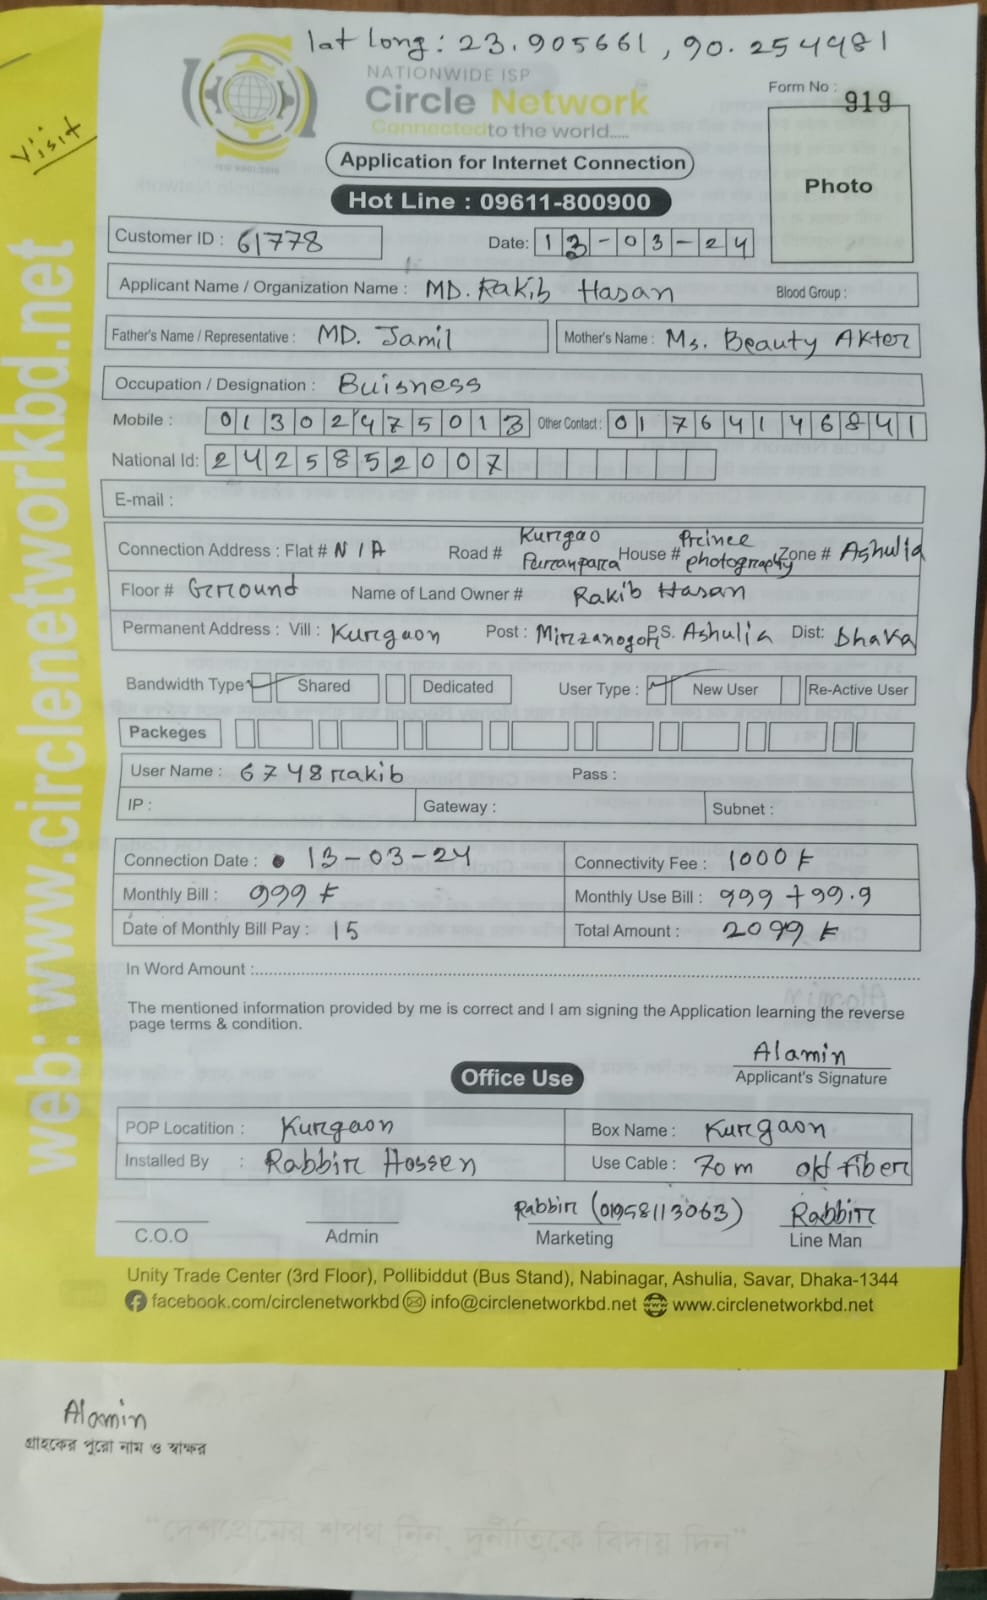 lat long: 23.905661, 90.254481
NATIONWIDE ISP
Circle Network
Connected to the world.....
Form No : 919
Visit
Application for Internet Connection
Photo
Hot Line : 09611-800900
Customer ID : 61778 Date: 13-03-24
Applicant Name / Organization Name : MD. Rakib Hasan Blood Group :
Father's Name / Representative : MD. Jamil Mother's Name : Ms. Beauty Akter
Occupation / Designation : Buisness
Mobile : 01302475013 Other Contact : 01764146841
National Id: 2425852007
E-mail :
Connection Address : Flat # N/A Road # Kurgao Puranpara House # Prince photography Zone # Ashulia
Floor # Ground Name of Land Owner # Rakib Hasan
Permanent Address : Vill : Kurgaon Post : Mirzanogor P.S. Ashulia Dist: Dhaka
Bandwidth Type Shared Dedicated User Type : New User Re-Active User
Packeges
User Name : 6748rakib Pass :
IP : Gateway : Subnet :
Connection Date : 13-03-24 Connectivity Fee : 1000 ৳
Monthly Bill : 999 ৳ Monthly Use Bill : 999 + 99.9
Date of Monthly Bill Pay : 15 Total Amount : 2099 ৳
In Word Amount :
The mentioned information provided by me is correct and I am signing the Application learning the reverse
page terms & condition.
Alamin
Applicant's Signature
Office Use
POP Locatition : Kurgaon Box Name : Kurgaon
Installed By : Rabbir Hossen Use Cable : 70 m old fiber
Rabbir (01958113063) Rabbir
C.O.O Admin Marketing Line Man
Unity Trade Center (3rd Floor), Pollibiddut (Bus Stand), Nabinagar, Ashulia, Savar, Dhaka-1344
facebook.com/circlenetworkbd info@circlenetworkbd.net www.circlenetworkbd.net
web: www.circlenetworkbd.net
Alamin
গ্রাহকের পুরো নাম ও স্বাক্ষর
"দেশপ্রেমের শপথ নিন, দুর্নীতিকে বিদায় দিন"